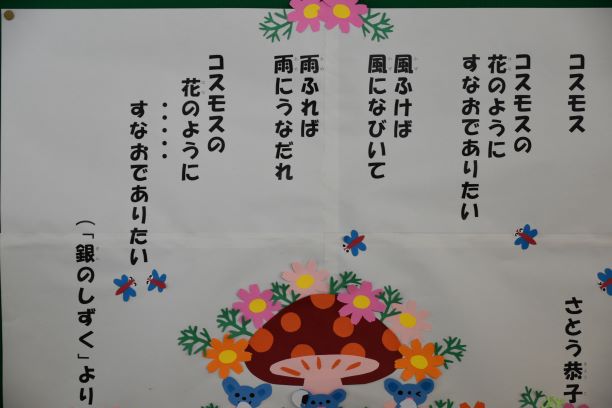 コスモス
さとう恭子
コスモスの
花のように
すなおでありたい
風ふけば
風になびいて
雨ふれば
雨にうなだれ
コスモスの
花のように
・・・・・
すなおでありたい
(「銀のしずく」より